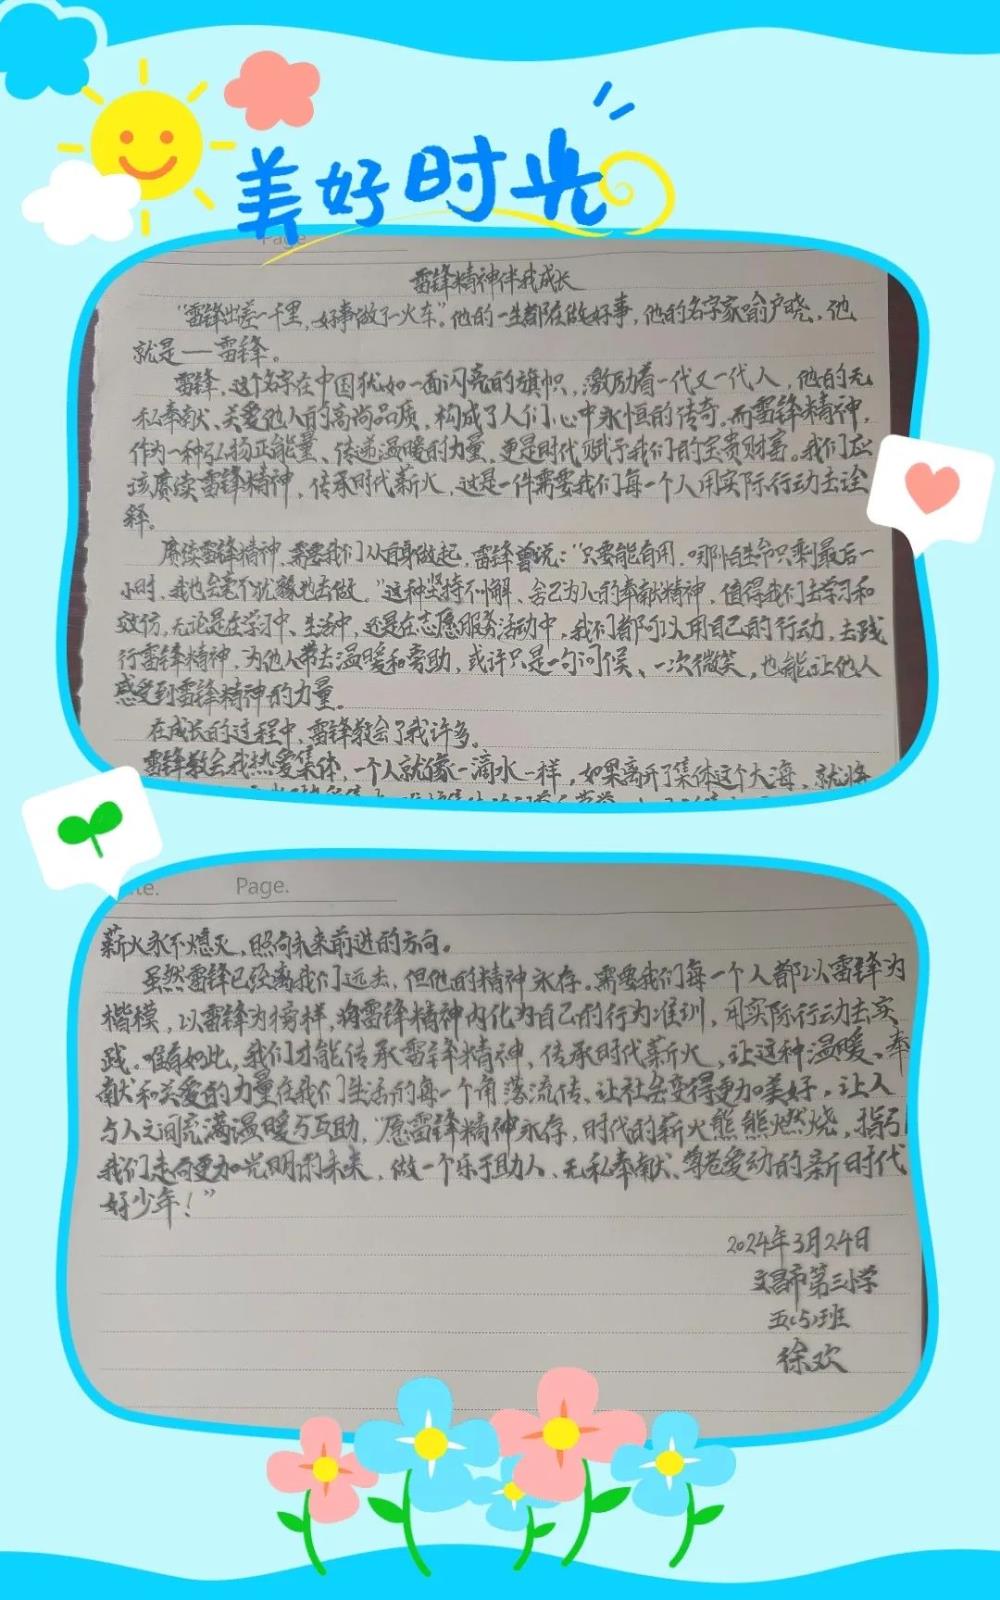 美好时光
Page
雷锋精神伴我成长
“雷锋出差一千里，好事做了一火车”。他的一生都在做好事，他的名字家喻户晓，他
就是——雷锋。
雷锋，这个名字在中国犹如一面闪亮的旗帜，激励着一代又一代人，他的无
私奉献、关爱他人的高尚品质，构成了人们心中永恒的传奇。而雷锋精神，
作为一种弘扬正能量、传递温暖的力量，更是时代赋予我们的宝贵财富。我们应
该赓续雷锋精神，传承时代薪火，这是一件需要我们每一个人用实际行动去诠
释。
赓续雷锋精神，需要我们从自身做起，雷锋曾说：“只要能有用，哪怕生命只剩最后一
小时，我也会毫不犹豫地去做。”这种坚持不懈、舍己为人的奉献精神，值得我们去学习和
效仿，无论是在学习中、生活中，还是在志愿服务活动中，我们都可以用自己的行动，去践
行雷锋精神，为他人带去温暖和帮助，或许只是一句问候、一次微笑，也能让他人
感受到雷锋精神的力量。
在成长的过程中，雷锋教会了我许多。
雷锋教会我热爱集体，一个人就像一滴水一样，如果离开了集体这个大海，就将
te.
Page.
薪火永不熄灭，照向未来前进的方向。
虽然雷锋已经离我们远去，但他的精神永存。需要我们每一个人都以雷锋为
楷模，以雷锋为榜样，将雷锋精神内化为自己的行为准则，用实际行动去实
践。唯有如此，我们才能传承雷锋精神，传承时代薪火，让这种温暖、奉
献和关爱的力量在我们生活的每一个角落流传、让社会变得更加美好，让人
与人之间充满温暖与互助，“愿雷锋精神永存，时代的薪火熊熊燃烧，指引
我们走向更加光明的未来，做一个乐于助人、无私奉献、尊老爱幼的新时代
好少年！”
2024年3月24日
文昌市第三小学
五（5）班
徐欢